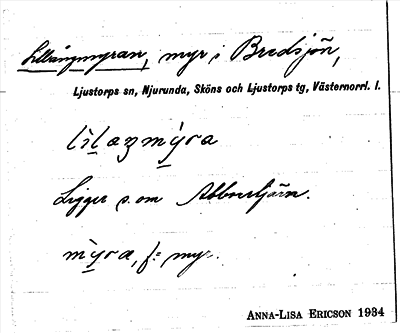 Lillängmyran, myr i Bredsjön,
Ljustorps sn, Njurunda, Sköns och Ljustorps tg, Västernorrl. l.
Ligger s. om Abborrtjärn.
mỳra, f: myr.
ANNA-LISA ERICSON 1934